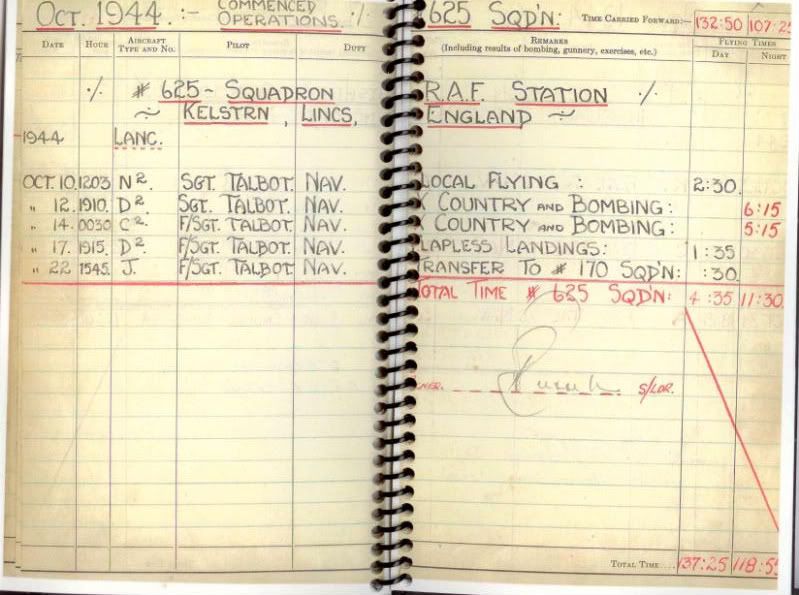 OCT. 1944. :- COMMENCED OPERATIONS. ·/· 625 SQD'N: TIME CARRIED FORWARD:— 132:50 107:25
DATE HOUR AIRCRAFT TYPE AND NO. PILOT DUTY REMARKS (Including results of bombing, gunnery, exercises, etc.) FLYING TIMES
DAY NIGHT
·/· # 625 - SQUADRON R.A.F. STATION ·/·
~ KELSTRN, LINCS, ENGLAND ~
1944 LANC.
OCT. 10. 1203 N². SGT. TALBOT. NAV. LOCAL FLYING : 2:30.
" 12. 1910. D². SGT. TALBOT. NAV. X COUNTRY AND BOMBING: 6:15
" 14. 0030 C². F/SGT. TALBOT. NAV. X COUNTRY AND BOMBING: 5:15
" 17. 1915. D². F/SGT. TALBOT. NAV. FLAPLESS LANDINGS: 1:35
" 22 1545. J. F/SGT. TALBOT. NAV. TRANSFER TO # 170 SQD'N: :30.
TOTAL TIME # 625 SQD'N: 4:35 11:30.
S/LDR.
TOTAL TIME.... 137:25 118:55